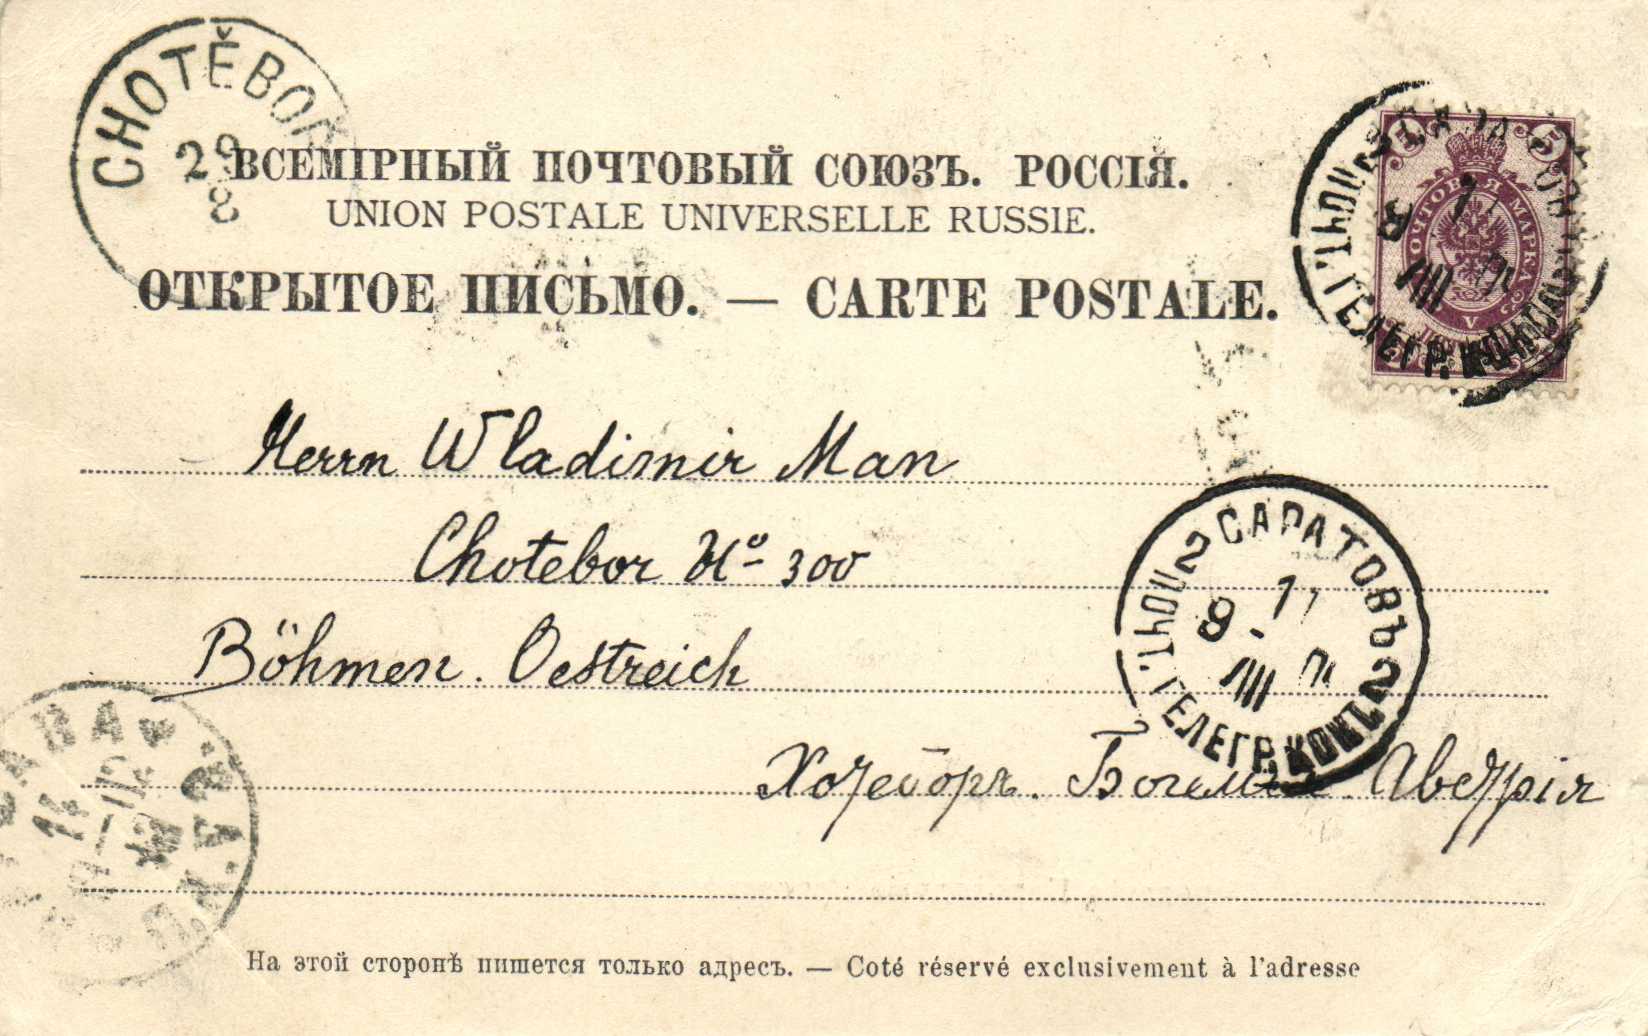 CHOTĚBOŘ
29
8
ВСЕМІРНЫЙ ПОЧТОВЫЙ СОЮЗЪ. РОССІЯ.
UNION POSTALE UNIVERSELLE RUSSIE.
ОТКРЫТОЕ ПИСЬМО. — CARTE POSTALE.
5 5
ПОЧТОВАЯ МАРКА
V
ПОЧТ. ТЕЛЕГР.
Herrn Wladimir Man
Chotebor No 300
Böhmen. Oestreich
2 САРАТОВЪ 2
8
VIII
ПОЧТ. ТЕЛЕГР. КОНТ.
Хотеборъ. Богемія Австрія
На этой сторонѣ пишется только адресъ. — Coté réservé exclusivement à l'adresse